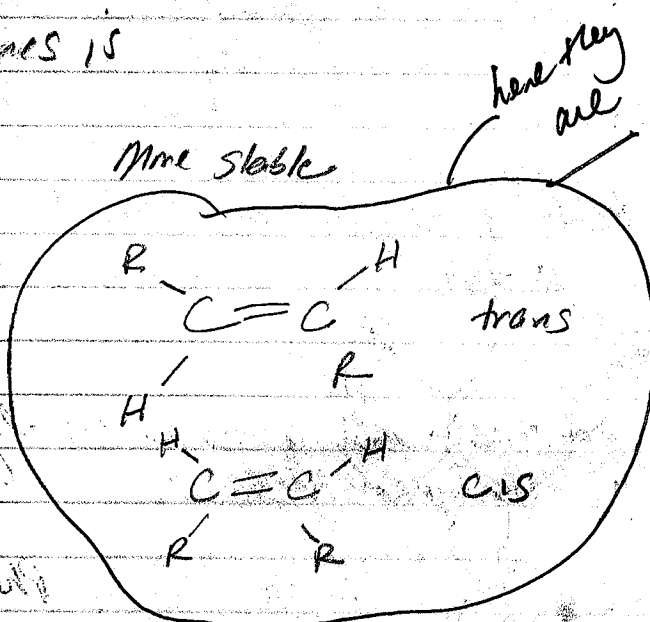 nes is
here they
are
More stable
R H
C = C trans
H R
H H
C = C cis
R R